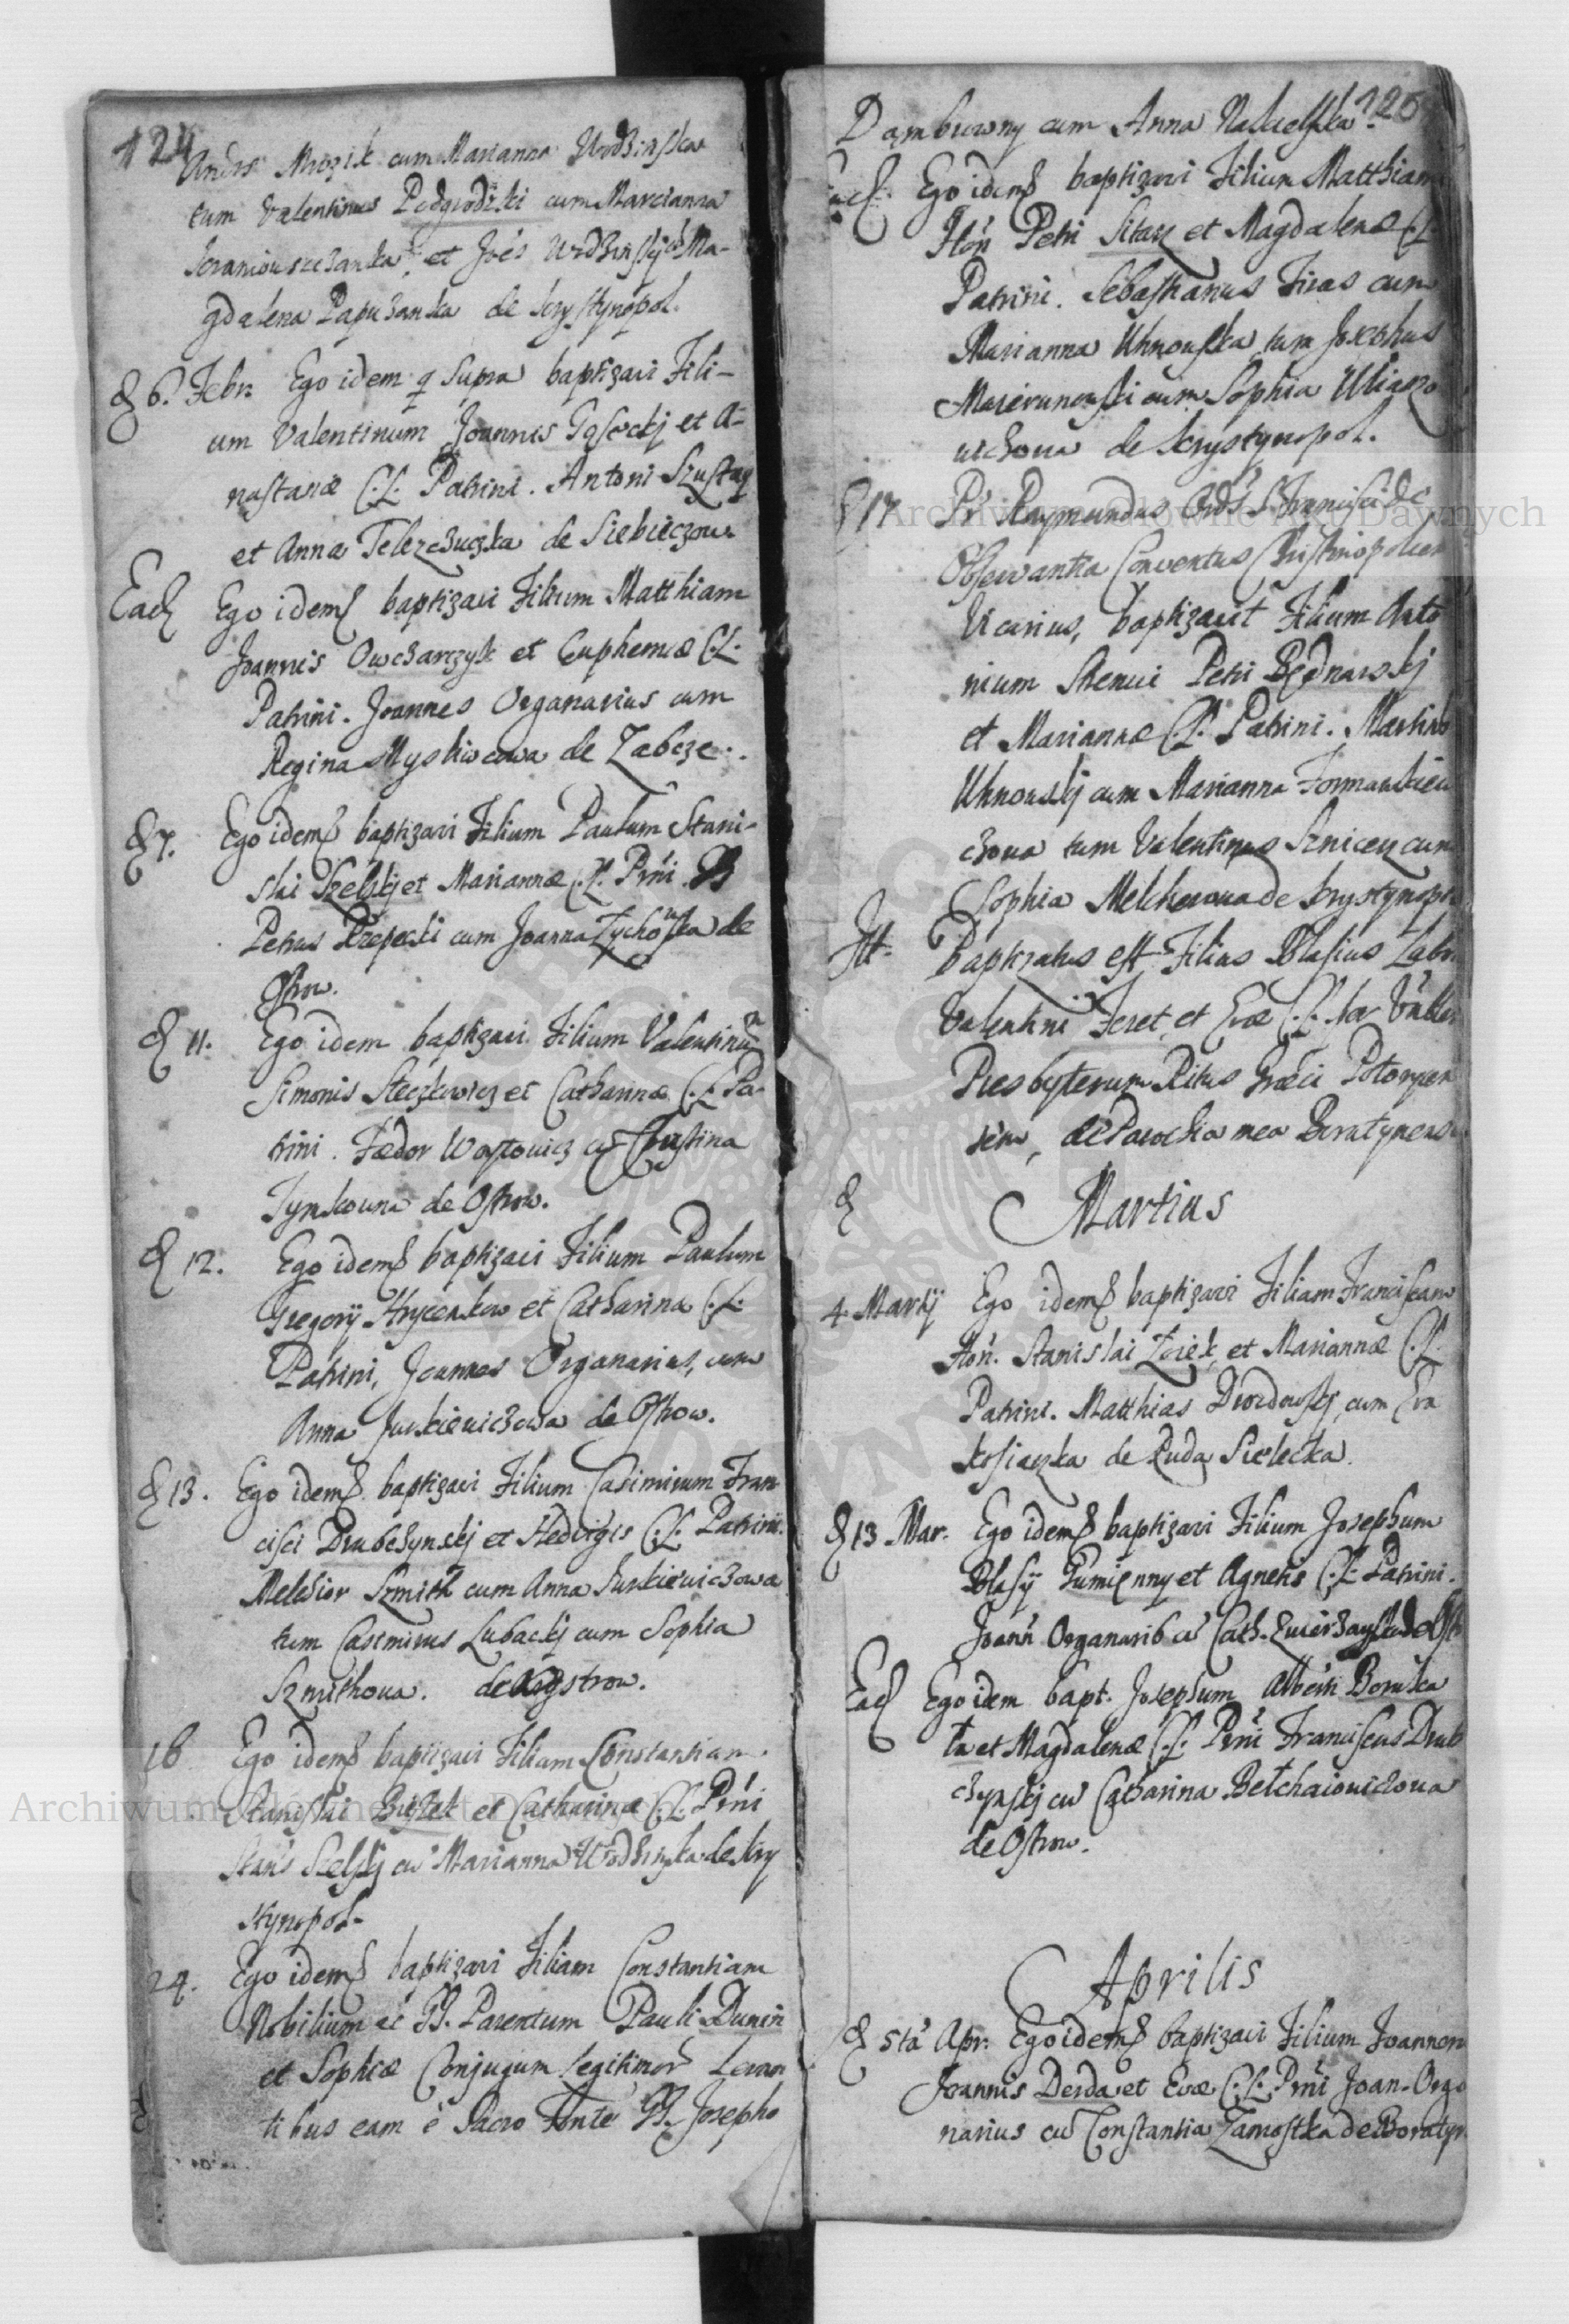 124
Andrs Mrozik cum Marianna Wodzinska
tum Valentinus Podgrodzki cum Marcianna
et Joes Wodzinskij Ma-
gdalena Papuzanka de Krystynopol.
& 6. Febr. Ego idem q Supra baptizavi Fili-
um Valentinum Joannis Gąseckj et A-
nastasiæ C.L. Patrini. Antoni Szustag
et Anna Telezczuczka de Siebieczow
Ead Ego idem baptizavi Filium Matthiam
Joannis Owczarczyk et Euphemiæ C.L.
Patrini. Joannes Organarius cum
Regina Mysliwcowa de Zabcze.
& 7. Ego idem baptizavi Filium Paulum Stani-
slai Szelskj et Mariannæ C.L. Prni.
Petrus Krzepecki cum Joanna Zychonska de
Ostrow.
& 11. Ego idem baptizavi Filium Valentinu
Simonis Steczkowicz et Catharinæ C.L. Pa-
trini. Fedor Wastowicz cu Christina
Tymkowna de Ostrow.
& 12. Ego idem baptizavi Filium Paulum
Gregorij Hrycenkow et Catharina C.L.
Patrini, Joannes Organarius, cum
Anna Jurkiewiczowa de Ostrow.
& 13. Ego idem baptizavi Filium Casimirum Fran
cisci Drubczynskj et Hedvigis C.L. Patrini.
Melchior Szmith cum Anna Jurkiewiczowa
tum Casimirus Lubackj cum Sophia
Szmithowa. de Ostrow.
16 Ego idem baptizavi Filiam Constantiam
Stanislai Bizek et Catharinæ C.L. Prni
Stanis Szelskj cu Marianna Wodzinska de Kry
stynopol-
24. Ego idem baptizavi Filiam Constantiam
Nobilium et GG. Parentum Pauli Dunin
et Sophiæ Conjugum legitimor Levan
tibus eam è Sacro Fonte GG. Josepho
126
Dąmbrowny cum Anna Nakielska
Ead. Ego idem baptizavi Filium Matthiam
Hon Petri Sitarz et Magdalenæ C.L.
Patrini. Sebastianus Firas cum
Marianna Uhnowska tum Josephus
cum Sophia Uliazo
wichowa de Krystynopol.
& 17 Pr Raymundus Ords S. Francisci de
Observantia Conventus Christinopolien
Vicarius, baptizavit Filium Anto
nium Strenui Petri Będnarskj
et Mariannæ C.L. Patrini. Martin
Uhnowskj cum Marianna Formankiew
czowa tum Valentinus Sznicerz cum
Sophia Melcherowa de Krystynop
Itt. Baptizatus est Filius Blasius Labr
Valentini Feret, et Evæ C.L.
Presbyterum Ritus Græci Potorycen
sem, de Parochia mea Boratynens
& Martius
4 Martij Ego idem baptizavi Filiam Franciscam
Hon. Stanislai Zoięk et Mariannæ C.L.
Patrini. Matthias Drozdowskj cum Eva
Ksiązka de Ruda Sielecka.
& 13 Mar. Ego idem baptizavi Filium Josephum
Blasij Rumięnny et Agnetis C.L. Patrini.
Joann Organarib cu Cath. de Ostr
Ead Ego idem bapt. Josephum Alberti Boruka
ta et Magdalenæ C.L. Prni Franciscus Drub
czynskj cu Catharina Betchaiowiczowa
de Ostrow.
Aprilis
& 5ta Apr. Ego idem baptizavi Filium Joannem
Joannis Derda et Evæ C.L. Prni Joan. Orga
narius cu Constantia Zamostka de Boratyn
Archiwum Główne Akt Dawnych